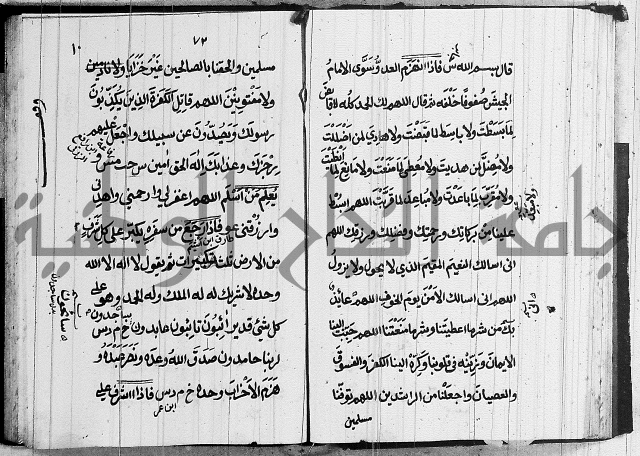 قال بسم الله س فاذا انهزم العدو سوى الامام
الجيش صفوفا خلفه ثم قال اللهم لك الحمد كله لا قابض
لما بسطت ولا باسط لما قبضت ولا هادي لمن اضللت
ولا مضل لمن هديت ولا معطي لما منعت ولا مانع لما اعطيت
ولا مقرب لما باعدت ولا مباعد لما قربت اللهم ابسط
علينا من بركاتك ورحمتك وفضلك ورزقك اللهم
اني اسالك النعيم المقيم الذي لا يحول ولا يزول
اللهم اني اسالك الامن يوم الخوف اللهم عائذ
بك من شر ما اعطيتنا وشر ما منعتنا اللهم حبب الينا
الايمان وزينه في قلوبنا وكره الينا الكفر والفسوق
والعصيان واجعلنا من الراشدين اللهم توفنا
مسلمين
٧٢
١٠
مسلمين والحقنا بالصالحين غير خزايا ولا نادمين
ولا مفتونين اللهم قاتل الكفرة الذين يكذبون
رسولك ويصدون عن سبيلك واجعل عليهم
رجزك وعذابك اله الحق امين س حب مس و
يعلم من اسلم اللهم اغفر لي وارحمني واهدني
وارزقني عو فاذا رجع من سفره يكبر على كل شرف
من الارض ثلث تكبيرات ثم يقول لا اله الا الله
وحده لا شريك له له الملك وله الحمد وهو على
كل شيء قدير ائبون تائبون عابدون خ م د س
لربنا حامدون صدق الله وعده ونصر عبده و
هزم الاحزاب وحده خ م د س فاذا اشرف على
ابن عمر
سائحون
جامعة النجاح الوطنية